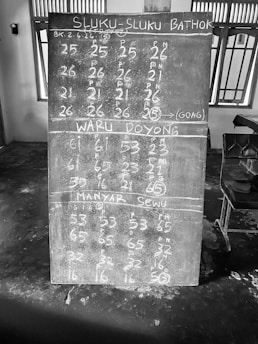 SLUKU-SLUKU BATHOK
BK: 2.6.26
25 25 25 26
P P PN
26 26 26 21
P P P
21 21 21 26
P P P
26 26 26 25 → (GONG)
WARU DOYONG
61 61 53 23
61 65 53 23
35 16 21 65
MANYAR SEWU
P P P PN
53 53 53 53
65 65 65 32
32 32 32 16
16 16 16 56